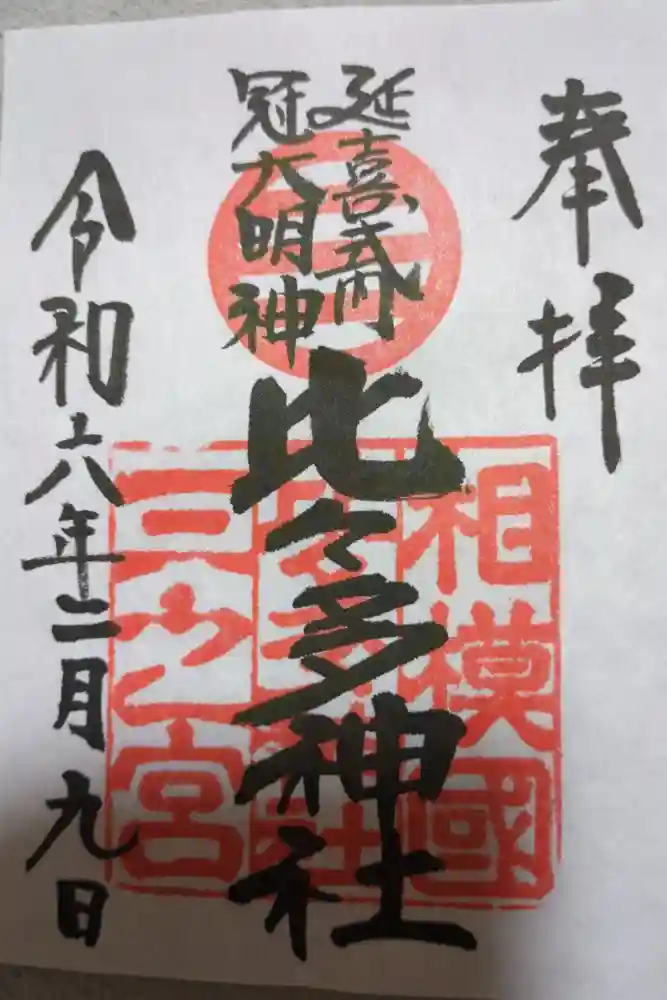 奉拝
延喜式内
冠大明神
比々多神社
令和六年二月九日
相模國
比々多神社
三之宮
三